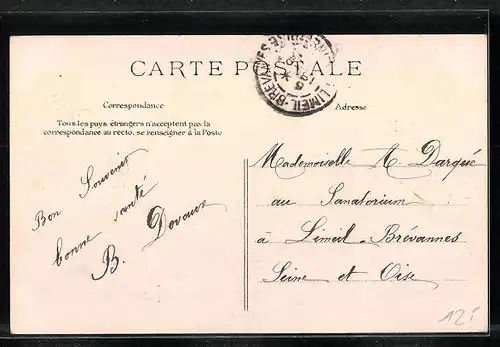 CARTE POSTALE
LIMEIL-BREVANNES
Correspondance
Adresse
Tous les pays étrangers n'acceptent pas la
correspondance au recto, se renseigner à la Poste
Bon Souvenir
bonne santé
B. Devaux
Mademoiselle A Darqué
au Sanatorium
à Limeil-Brévannes
Seine et Oise